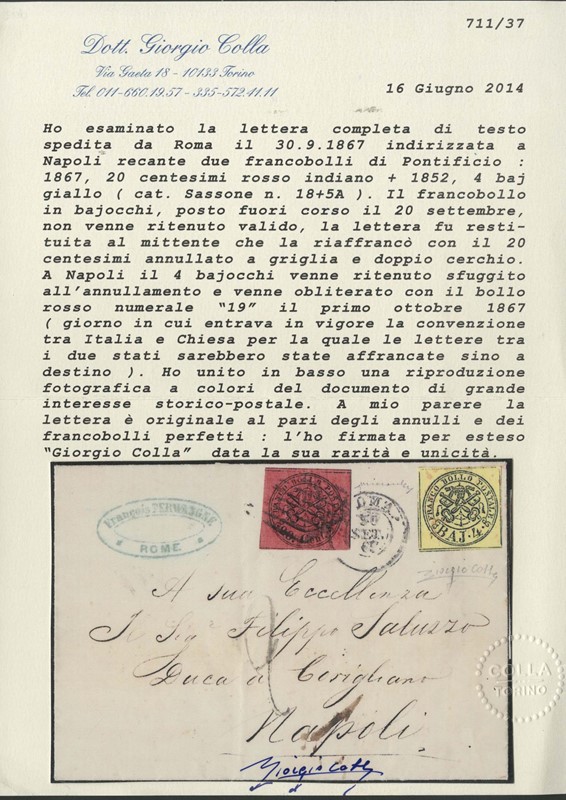 711/37
Dott. Giorgio Colla
Via Gaeta 18 - 10133 Torino
Tel. 011-660.19.57 - 335-572.41.11
16 Giugno 2014
Ho esaminato la lettera completa di testo
spedita da Roma il 30.9.1867 indirizzata a
Napoli recante due francobolli di Pontificio :
1867, 20 centesimi rosso indiano + 1852, 4 baj
giallo ( cat. Sassone n. 18+5A ). Il francobollo
in bajocchi, posto fuori corso il 20 settembre,
non venne ritenuto valido, la lettera fu resti-
tuita al mittente che la riaffrancò con il 20
centesimi annullato a griglia e doppio cerchio.
A Napoli il 4 bajocchi venne ritenuto sfuggito
all'annullamento e venne obliterato con il bollo
rosso numerale "19" il primo ottobre 1867
( giorno in cui entrava in vigore la convenzione
tra Italia e Chiesa per la quale le lettere tra
i due stati sarebbero state affrancate sino a
destino ). Ho unito in basso una riproduzione
fotografica a colori del documento di grande
interesse storico-postale. A mio parere la
lettera è originale al pari degli annulli e dei
francobolli perfetti : l'ho firmata per esteso
"Giorgio Colla" data la sua rarità e unicità.
François
ROME
FRANCO BOLLO POSTALE
ROMA
SET
67
FRANCO BOLLO POSTALE
BAJ. 4
Giorgio Colla
A sua Eccellenza
Il Sigr Filippo Saluzzo
Duca di Corigliano
Napoli
COLLA
TORINO
Giorgio Colla